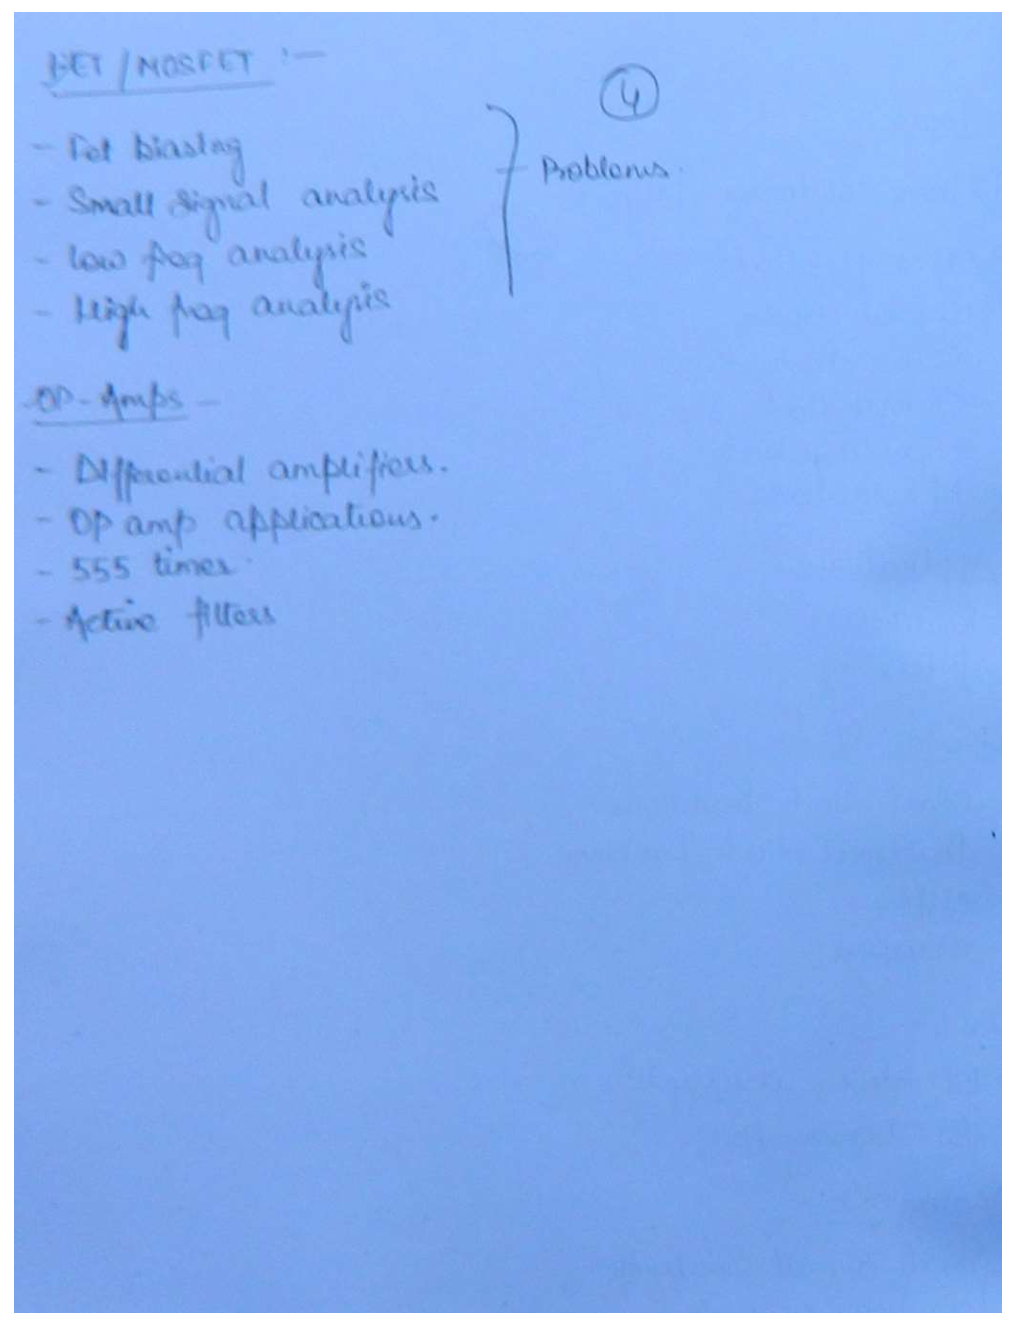 FET / MOSFET :-
④
- Fet biasing
Problems.
- Small signal analysis
- low freq analysis
- High freq analysis
OP-Amps -
- Differential amplifiers.
- OP amp applications.
- 555 timer.
- Active filters